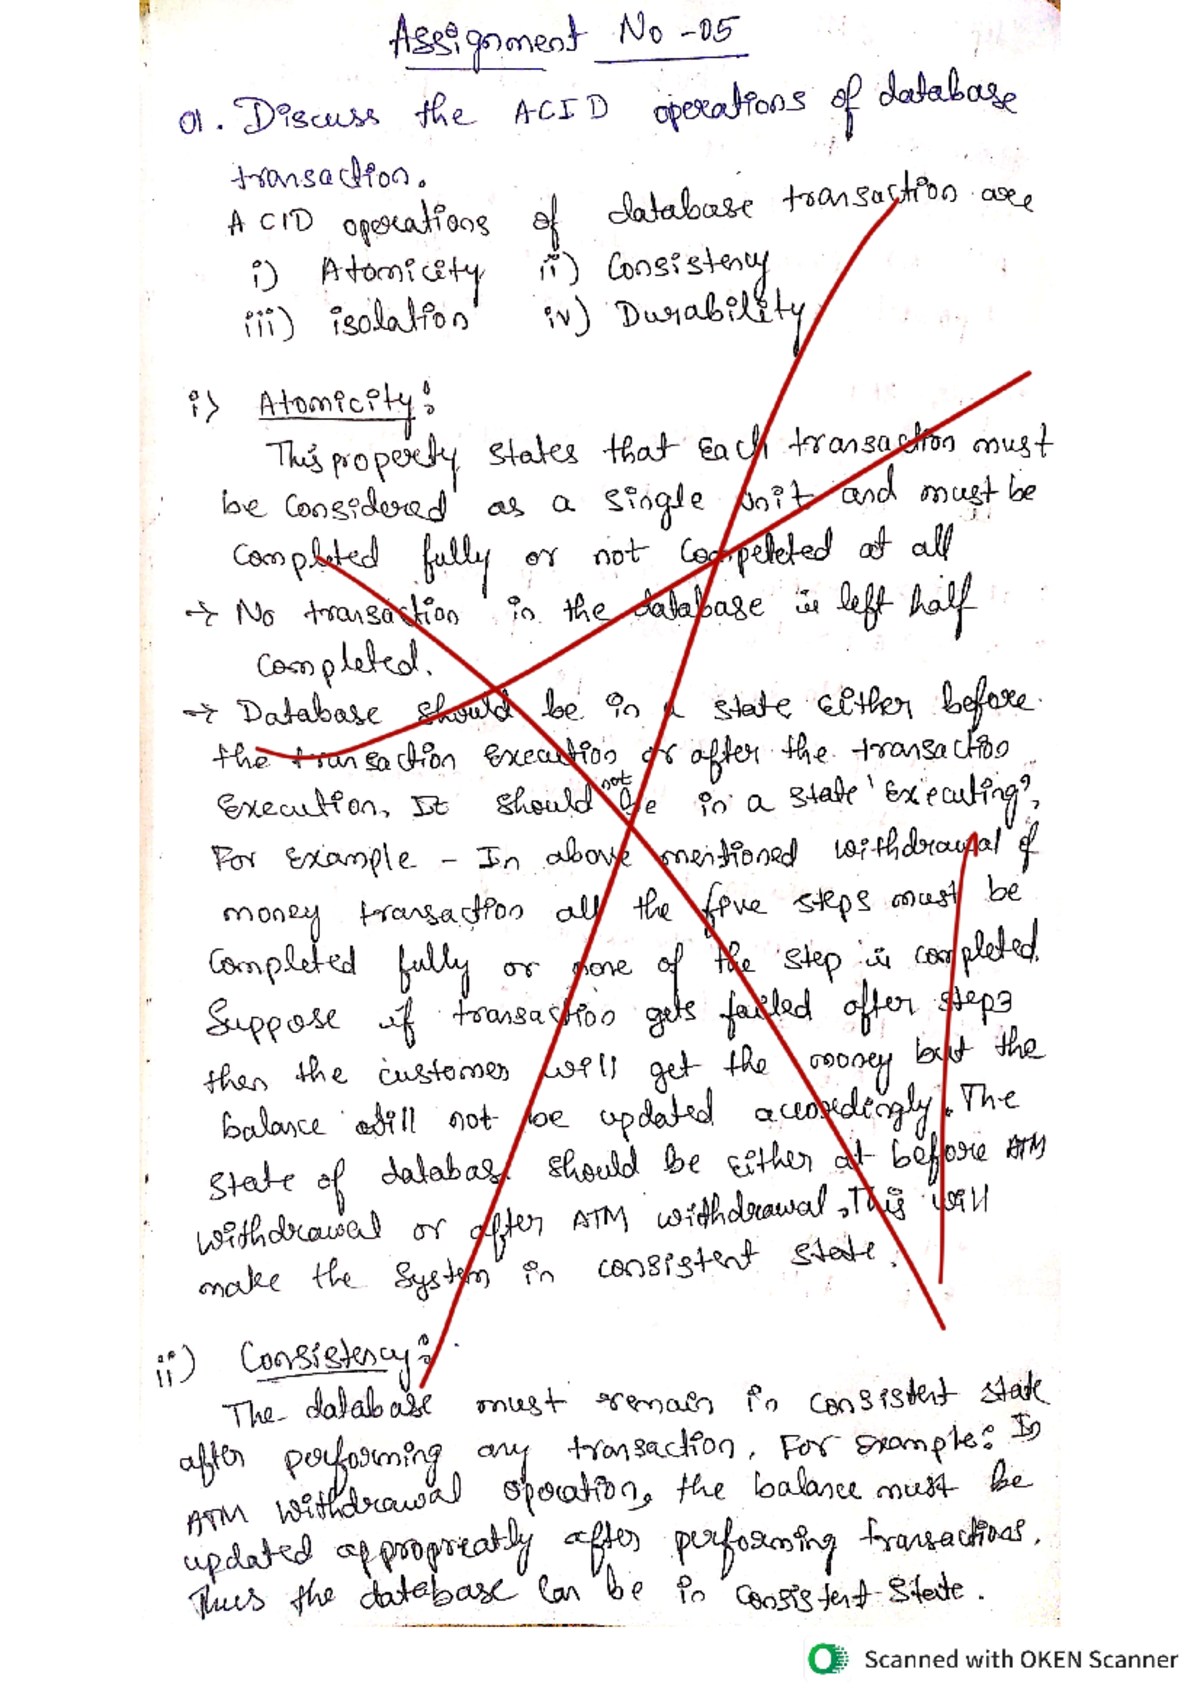 Assignment No -05
01. Discuss the ACID operations of database
transaction.
ACID operations of database transaction are
i) Atomicity ii) Consistency
iii) isolation iv) Durability
i) Atomicity:
This property states that Each transaction must
be Considered as a single unit and must be
completed fully or not compeleted at all
→ No transaction in the database is left half
completed.
→ Database should be in a state Either before
the transaction Execution or after the transaction
Execution, It should not be in a state 'Executing'.
For Example - In above mentioned withdrawal of
money transaction all the five steps must be
completed fully or none of the step is completed.
Suppose if transaction gets failed after step3
then the customer will get the money but the
balance will not be updated accordingly. The
state of databas should be Either at before ATM
withdrawal or after ATM withdrawal, This will
make the system in consistent state.
ii) Consistency:
The database must remain in consistent state
after performing any transaction. For Example: In
ATM withdrawal operation, the balance must be
updated appropreatly after performing transactions.
Thus the database can be in consistent state.
Scanned with OKEN Scanner